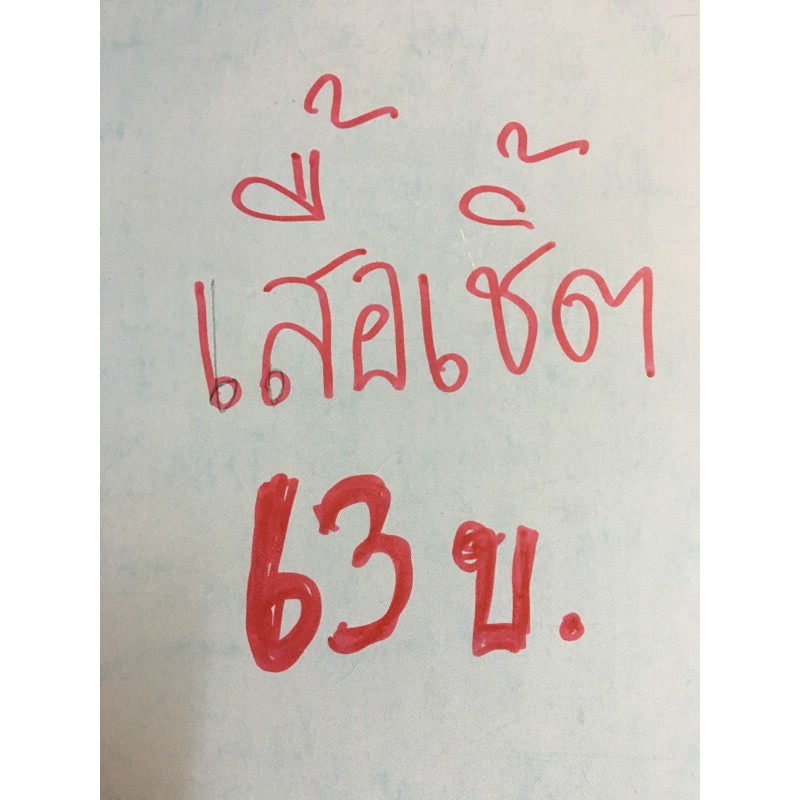 เสื้อเชิ้ต
63 ข.